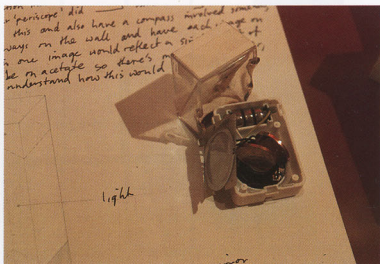 "periscope" did
this and also have a compass involved somehow
ways on the wall and have each image on
one image would reflect a
be on acetate so there's
understand how this would
light